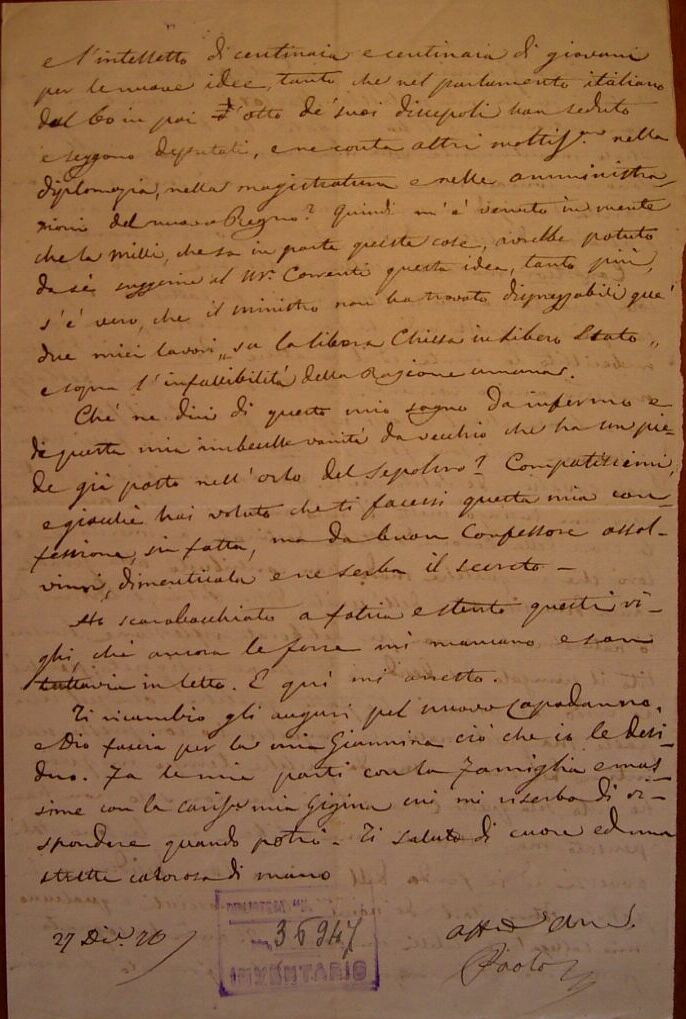 e l'intelletto di centinaia e centinaia di giovani
per le nuove idee, tanto che nel parlamento italiano
dal 60 in poi 7 o otto de' suoi discepoli han seduto
e seggono deputati, e ne conta altri moltiss.mi nella
diplomazia, nella magistratura e nelle amministra-
zioni del nuovo Regno? Quindi m'è venuto in mente
che la Milli, che sa in parte queste cose, avrebbe potuto
da sè suggerire al Mr. Correnti questa idea, tanto più,
s'è vero, che il ministro non ha trovato disprezzabili que'
due miei lavori „su la libera Chiesa in libero Stato„
e sopra l'infallibilità della Ragione umana.
Che ne dici di questo mio sogno da infermo e
di questa mia imbecille vanità da vecchio che ha un pie-
de già posto nell'orlo del Sepolcro? Compatiscimi,
e giacchè hai voluto che ti facessi questa mia con-
fessione, sia fatta, ma da buon Confessore assol-
vimi, dimenticala e ne serba il secreto –
Ho scarabocchiato a fatica e stento questi ri-
ghi, chè ancora le forze mi mancano e son
tuttavia in letto. E qui mi arresto.
Ti ricambio gli auguri pel nuovo Capodanno,
e Dio faccia per la mia Giannina ciò che io le desi-
dero. Fa le mie parti con la Famiglia e mas-
sime con la cariss.ma mia Gigina cui mi riserbo di ri-
spondere quando potrò. Ti saluto di cuore ed una
stretta calorosa di mano
27 Dic. 70
BIBLIOTECA
36947
INVENTARIO
Paolo